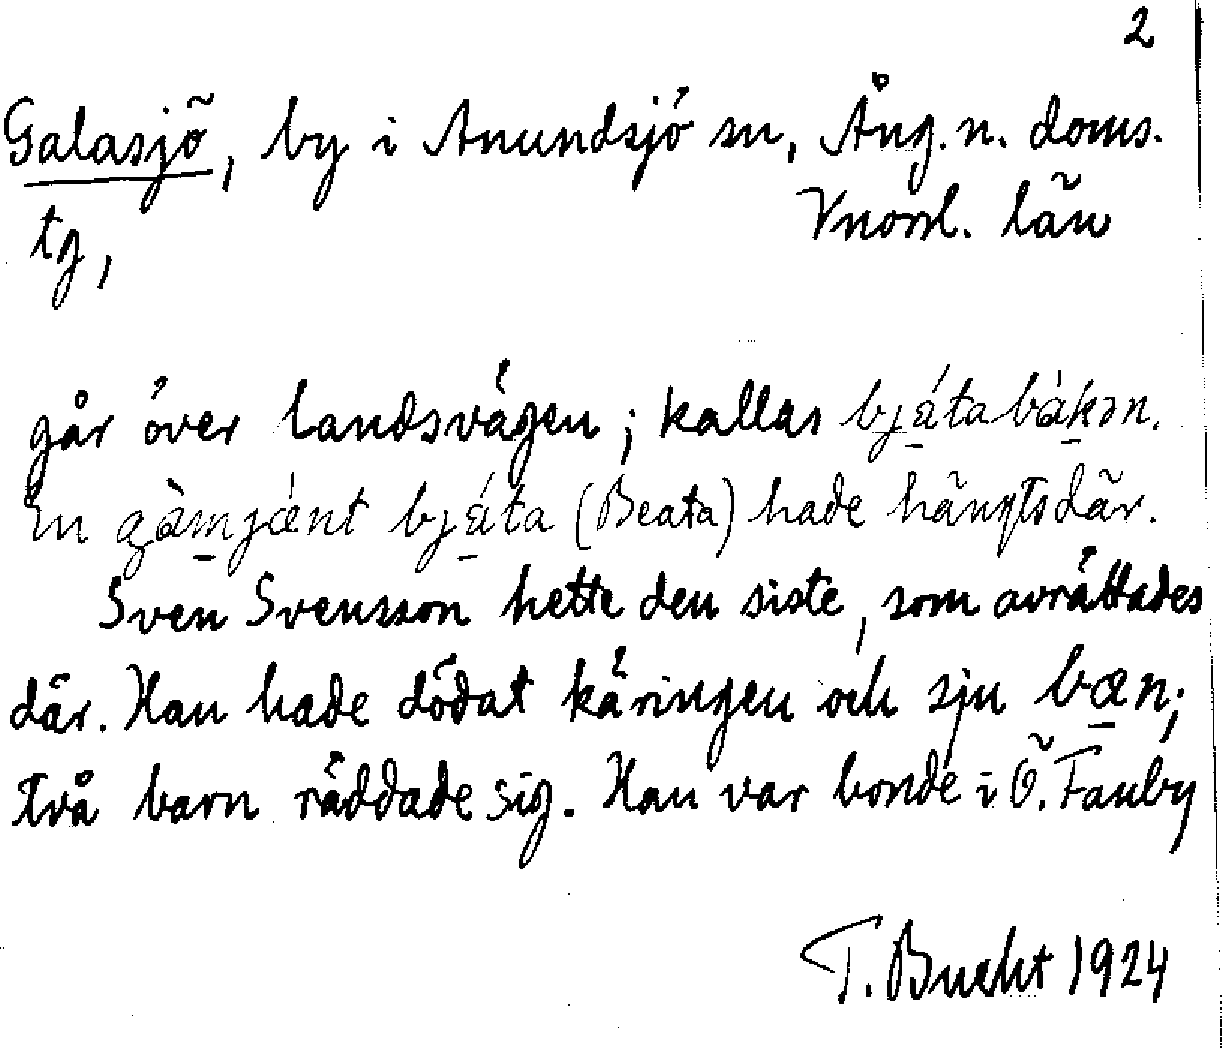 2
Galasjö, by i Anundsjö sn, Ång. n. doms.
tg, Vnorrl. län
går över landsvägen; kallas bjátabàkən.
En gàmjǽnt bjáta (Beata) hade hängts där.
Sven Svensson hette den siste, som avrättades
där. Han hade dödat käringen och sju bæn;
två barn räddade sig. Han var bonde i Ö. Fanby
T. Bucht 1924